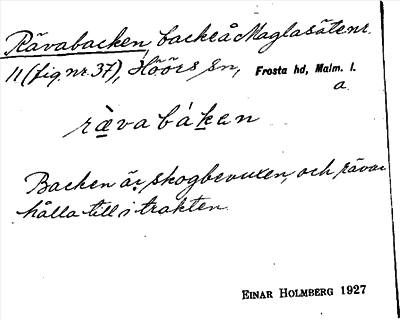 Rävabacken, backe å Maglasäte nr.
11 (fig. nr. 37), Höörs sn, Frosta hd, Malm. l.
a.
rävabáken
Backen är skogbevuxen, och rävar
hålla till i trakten.
EINAR HOLMBERG 1927